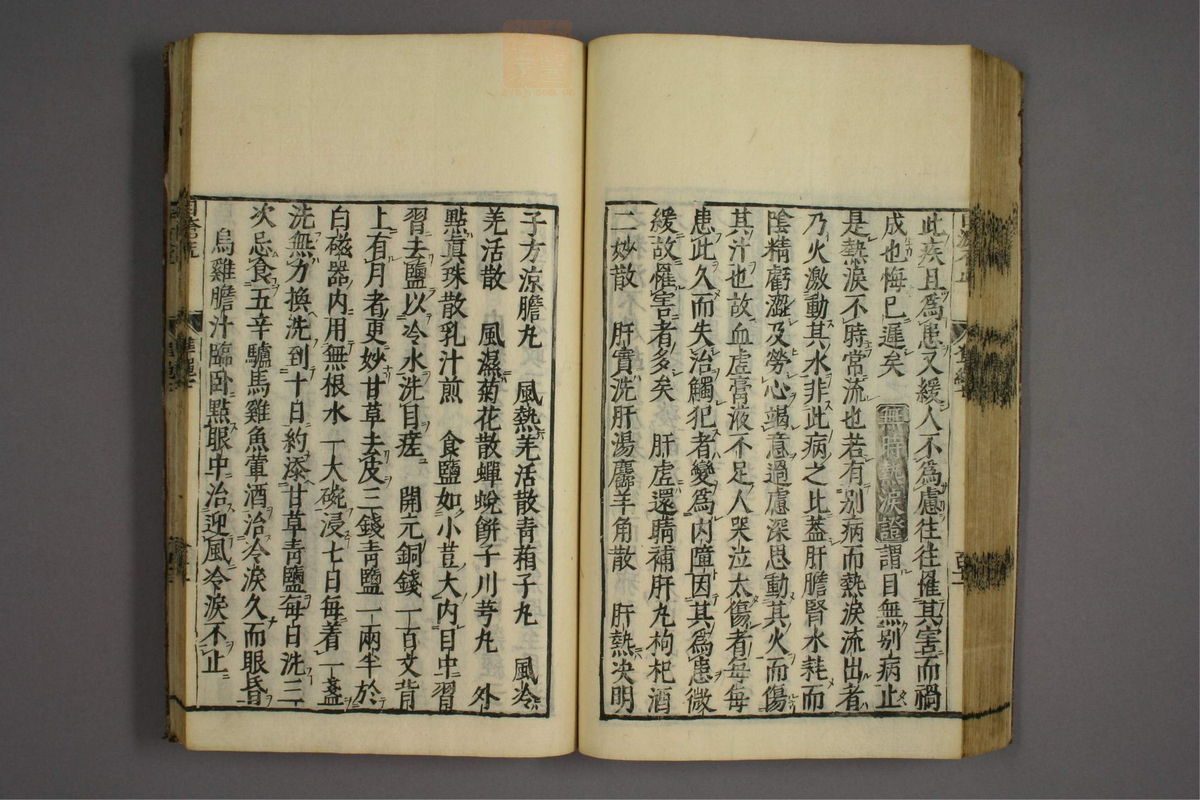 此疾且為患又緩人不為慮往往罹其害而禍
成也悔已遲矣 無時熱淚證 謂目無别病止
是熱淚不時常流也若有别病而熱淚流出者
乃火激動其水非此病之比葢肝膽腎水耗而
陰精虧澁及勞心竭意過慮深思動其火而傷
其汁也故血虛膏液不足人哭泣太傷者每每
患此久而失治觸犯者變為内障因其為患微
緩故罹害者多矣 肝虛還睛補肝丸枸杞酒
二妙散 肝實洗肝湯麢羊角散 肝熱决明
子方涼膽丸 風熱羌活散青葙子丸 風冷
羌活散 風濕菊花散蟬蛻餅子川芎丸 外
點真珠散乳汁煎 食鹽如小荳大内目中習
習去鹽以冷水洗目瘥 開元銅錢一百文背
上有月者更妙甘草去皮三錢青鹽一兩半於
白磁器内用無根水一大碗浸七日每着一盞
洗無力換洗到十日約添甘草青鹽每日洗二
次忌食五辛驢馬雞魚葷酒治冷淚久而眼昏
烏雞膽汁臨卧點眼中治迎風冷淚不止